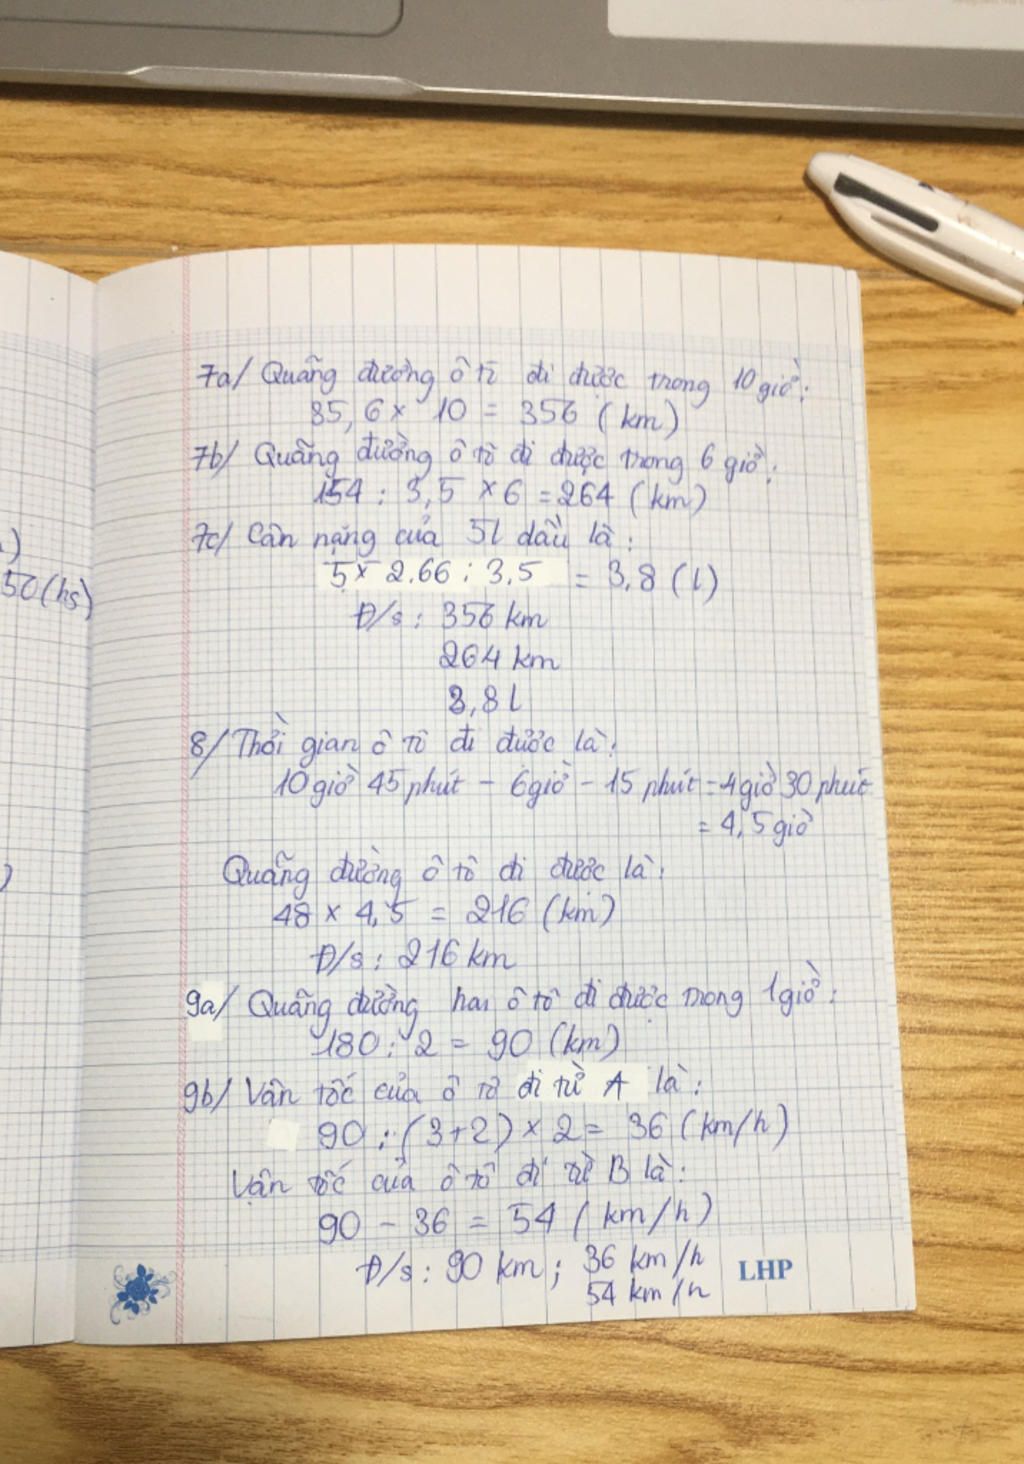 7a/ Quãng đường ô tô đi được trong 10 giờ:
35,6 × 10 = 356 (km)
7b/ Quãng đường ô tô đi được trong 6 giờ:
154 : 3,5 × 6 = 264 (km)
7c/ Cân nặng của 5l dầu là:
5 × 2.66 : 3.5 = 3,8 (l)
50 (hs)
Đ/s: 356 km
264 km
3,8 l
8/ Thời gian ô tô đi được là:
10 giờ 45 phút - 6 giờ - 15 phút = 4 giờ 30 phút
= 4,5 giờ
Quãng đường ô tô đi được là:
48 × 4,5 = 216 (km)
Đ/s: 216 km
9a/ Quãng đường hai ô tô đi được trong 1 giờ:
180 : 2 = 90 (km)
9b/ Vận tốc của ô tô đi từ A là:
90 : (3+2) × 2 = 36 (km/h)
Vận tốc của ô tô đi từ B là:
90 - 36 = 54 (km/h)
Đ/s: 90 km; 36 km/h
54 km/h
LHP